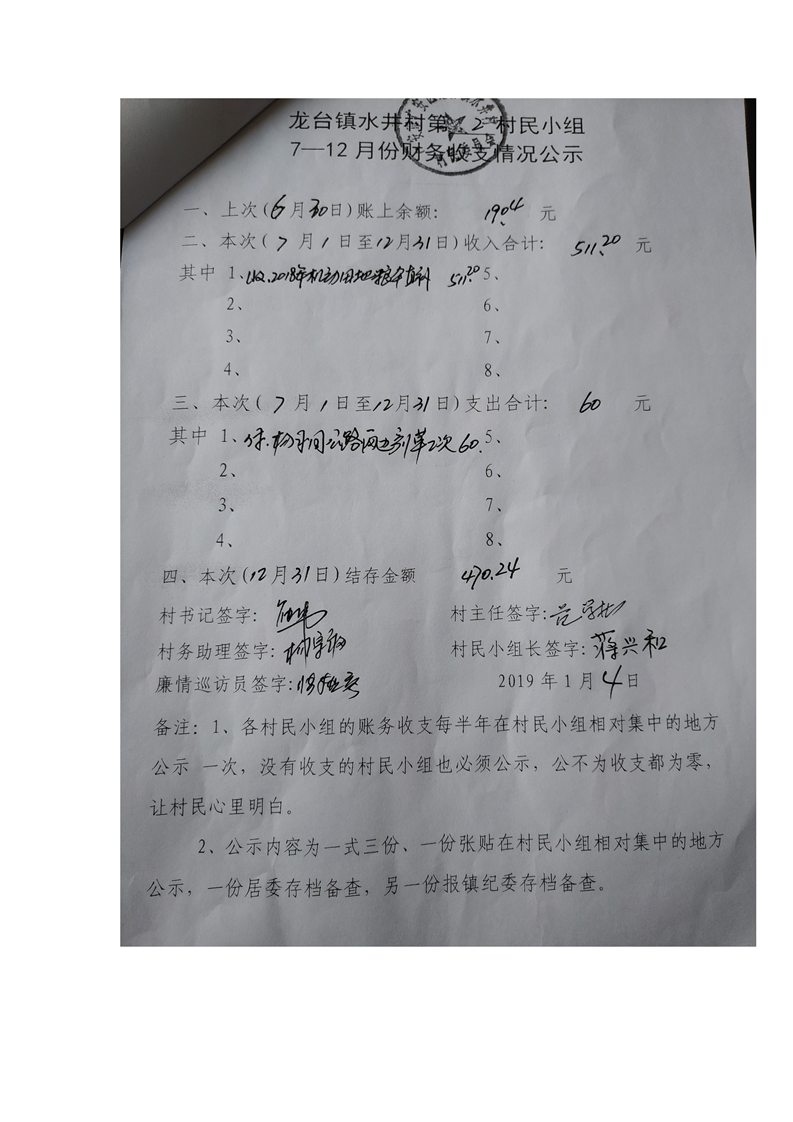 龙台镇水井村第 2 村民小组
7—12月份财务收支情况公示
一、上次(6月30日)账上余额: 19.04 元
二、本次(7月1日至12月31日)收入合计: 511.20 元
其中 1、收.2018年机动田地粮食直补 511.20 5、
2、 6、
3、 7、
4、 8、
三、本次(7月1日至12月31日)支出合计: 60 元
其中 1、付. 公路两边割草2次60. 5、
2、 6、
3、 7、
4、 8、
四、本次(12月31日)结存金额 470.24 元
村书记签字: 村主任签字:
村务助理签字: 村民小组长签字:蒋兴和
廉情巡访员签字: 2019年1月4日
备注:1、各村民小组的账务收支每半年在村民小组相对集中的地方
公示 一次,没有收支的村民小组也必须公示,公不为收支都为零,
让村民心里明白。
2、公示内容为一式三份、一份张贴在村民小组相对集中的地方
公示,一份居委存档备查,另一份报镇纪委存档备查。